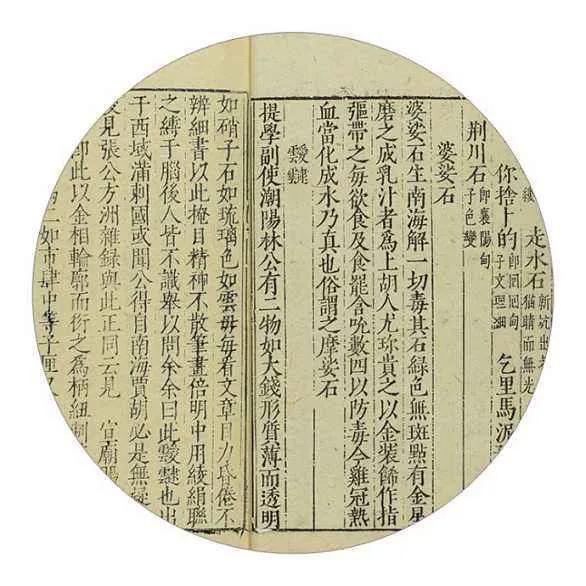 走水石 新坑出者 猫睛而無光
你捨卜的 即回回甸 子文理細 乞里馬泥
荆川石 即襄陽甸 子色變
婆娑石
婆娑石生南海解一切毒其石綠色無斑點有金星
磨之成乳汁者爲上胡人尤珍貴之以金裝飾作指
彄帶之每欲食及食罷含吮數四以防毒今雞冠熱
血當化成水乃真也俗謂之摩娑石
靉靆
提學副使潮陽林公有二物如大錢形質薄而透明
如硝子石如琉璃色如雲母每看文章目力昏倦不
辨細書以此掩目精神不散筆畫倍明中用綾絹聯
之縛于腦後人皆不識舉以問余余曰此靉靆也出
于西域滿剌國或聞公得自南海賈胡必是無疑
見張公方洲雜錄與此正同云見 宣廟
即此以金相輪廓而衍之爲柄紐制
二如市肆中等子匣